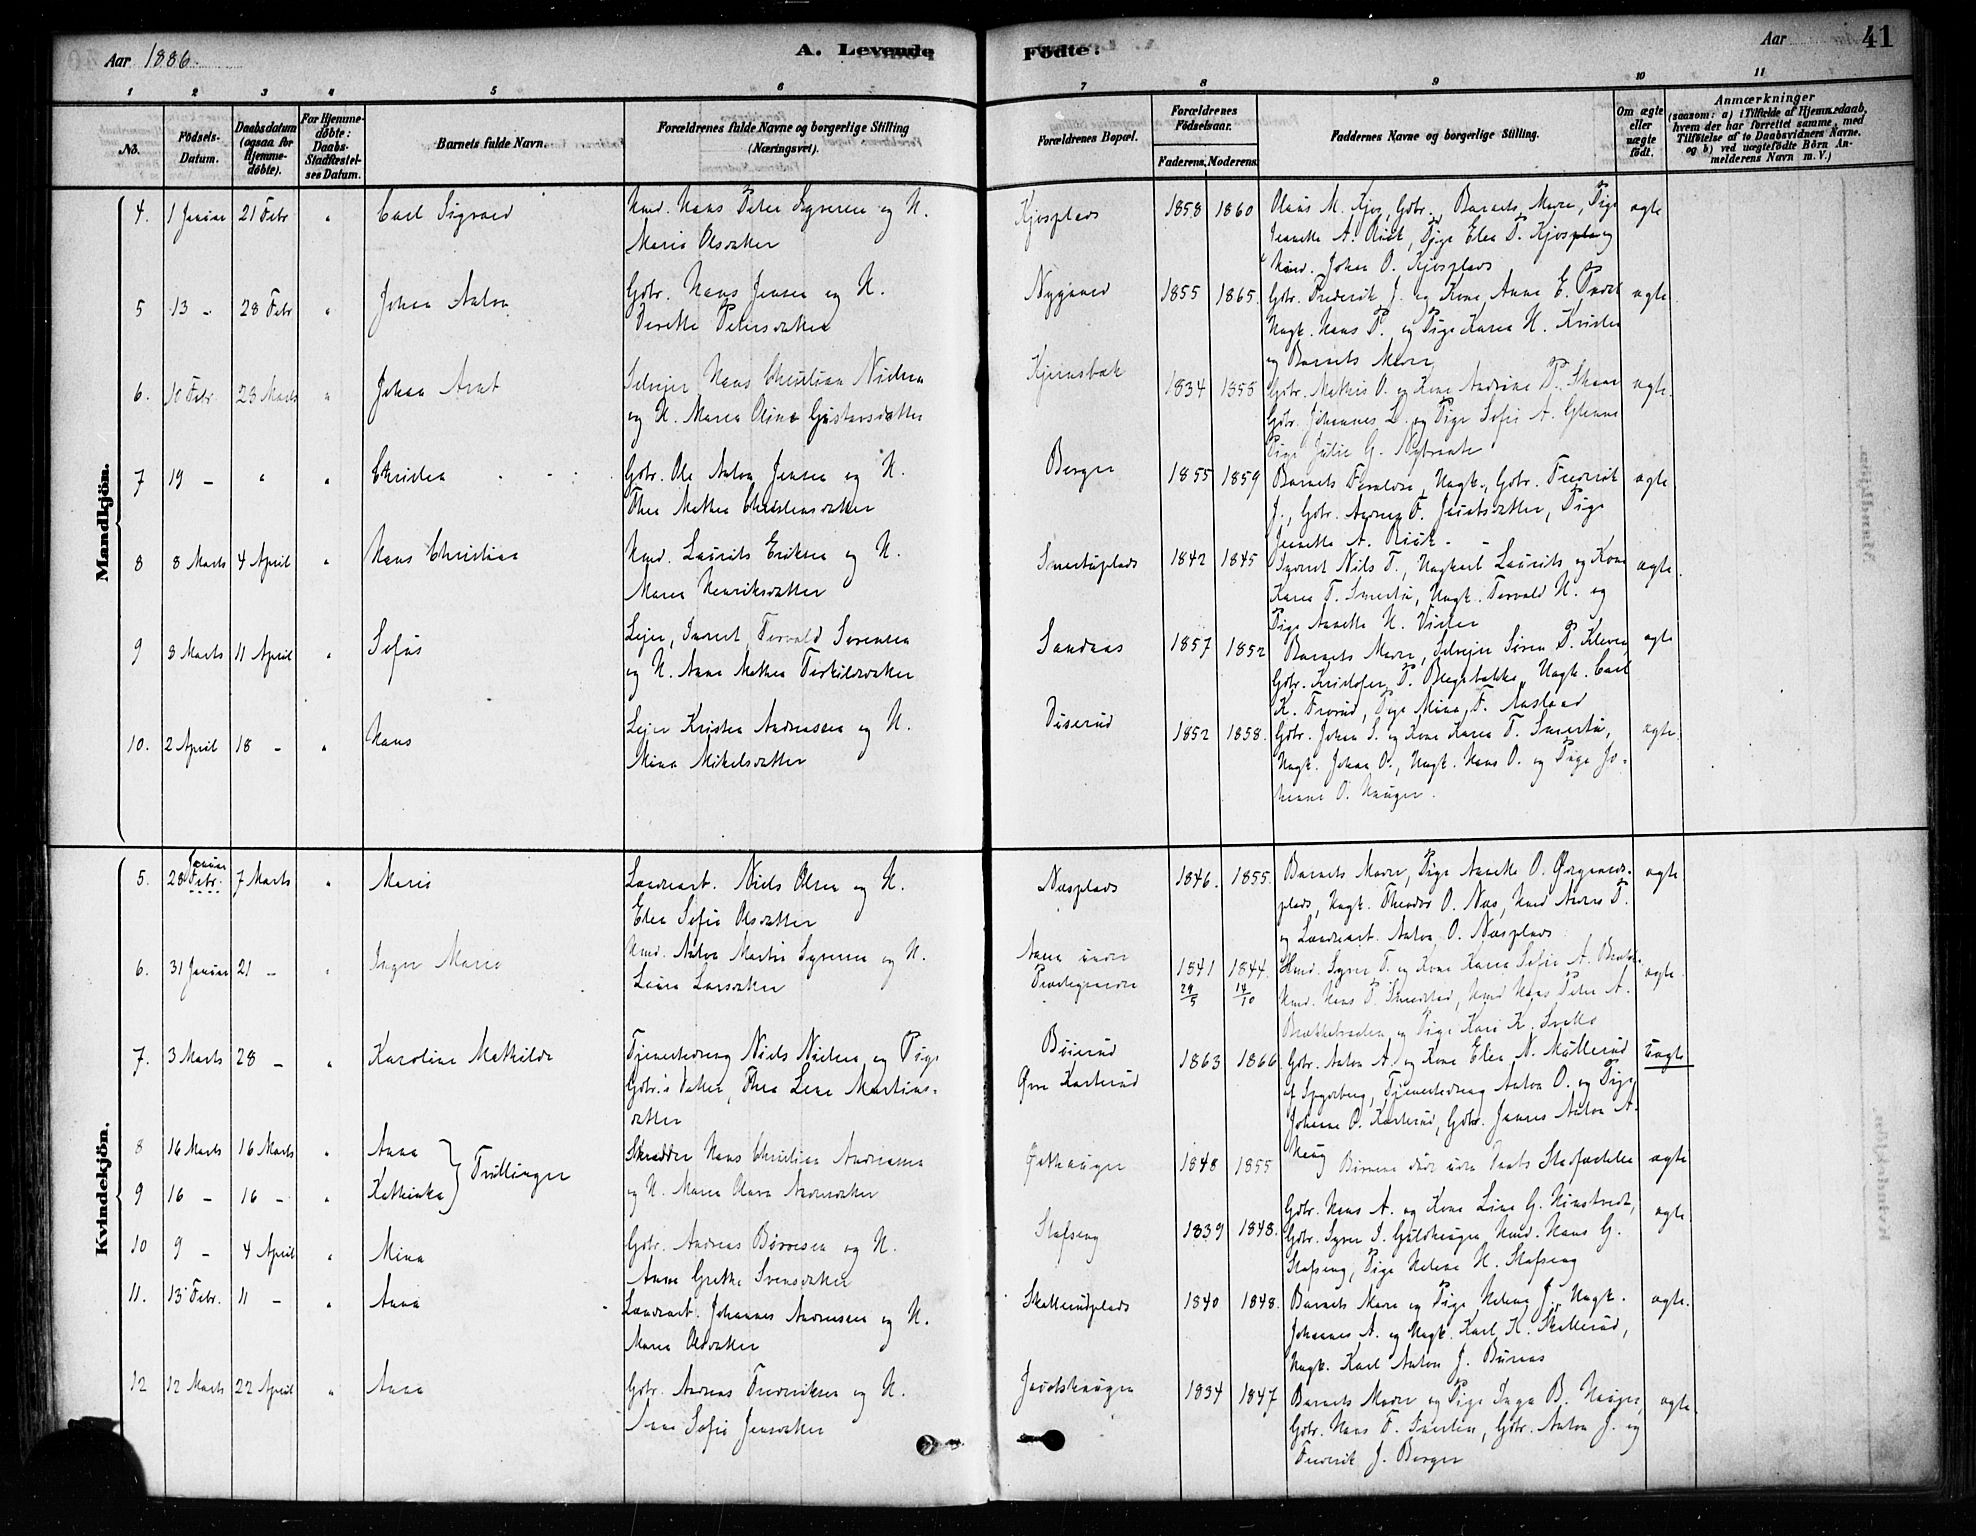 Aar 1886.
A. Levende Födte:
Aar
41
1 2 3 4 5 6 7 8 9 10 11
No.
Födsels-Datum.
Daabsdatum (ogsaa for Hjemme-döbte).
For Hjemme-döbte: Daabs-Stadfæstel-ses Datum.
Barnets fulde Navn.
Forældrenes fulde Navne og borgerlige Stilling (Næringsvei).
Forældrenes Bopæl.
Forældrenes Födselsaar.
Faderens. Moderens.
Faddernes Navne og borgerlige Stilling.
Om ægte eller uægte födt.
Anmærkninger
(saasom: a) i Tilfælde af Hjemmedaab, hvem der har forrettet samme, med Tilföielse af to Daabsvidners Navne. og b) ved uægtefödte Börn Anmelderens Navn m. V.)
Mandkjön.
4. 1 Januar 21 Febr " Carl Sigvard
Kmd. Hans Peter Syversen og H.
Marie Olsdatter
Kjosplads 1858 1860
Olaus M. Kjos, Gbr., Barnets Moder, Pige
Jeanette A. , Pige Elen P. Kjosplads og
Kmd. Johan O. Kjosplads
ægte
5 13 - 28 Febr " Johan Anton
Gbr. Hans Jensen og H.
Dorette Petersdatter
Nygaard 1855 1865.
Gbr. Frederik J. og Kone Anne E.
Ungk. Hans P. og Pige Karen H.
og Barnets Moder
ægte
6. 10 Febr 28 Marts " Johan Arnt
Selveier Hans Christian Nielsen
og H. Maren Oline Gustavsdatter
Kjernsbæk 1834 1855
Gbr. Mathis O. og Kone Andrine P. Skaar
Gbr. Johannes L. og Pige Sofie A. Glenne
Pige Julie G. Nybraate
ægte.
7 19 - " " Christen
Gbr. Ole Anton Jensen og H.
Thea Mathea Christensdatter
Berger 1855 1859
Barnets Forældre, Ungk., Gbr. Frederik
J., Gbr. Andrea O. Jacobsdatter, Pige
Jeanette A.
ægte
8 8 Marts 4 April " Hans Christian
Kmd. Laurits Eriksen og H.
Maren Henriksdatter
Smertuplads 1842 1845
Inderst Nils T., Ungkarl Laurits og Kone
Karen T. Smertu, Ungk. Torvald H. og
Pige Annette H. Visler
ægte.
9 8 Marts 11 April " Sofus
Leier, Inderst Torvald Sørensen
og H. Anne Mathea Terkildsdatter
Sandaas 1857 1852
Barnets Moder, Selveier Søren P. Kleven
Gbr. Kristofer P. , Ungk. Carl
K. , Pige Mina F. Aasland
ægte
10. 2 April 18 - " Hans
Leier Kristen Andreassen og H.
Mina Mikelsdatter
Diserud 1852 1858.
Gbr. Johan S. og Kone Karen T. Smertu,
Ungk. Johan O., Ungk. Hans O. og Pige Jo-
hanne O. Hauger.
ægte.
Kvindekjön.
5. 28 Januar Febr. 7 Marts " Marie
Landarb. Niels Olsen og H.
Elen Sofie Olsdatter
Næsplads 1846. 1855.
Barnets Moder, Pige Annette O.
plads, Ungk. Theodor O. Næs, Kmd Anders T.
og Landarb. Anton O. Næsplads
ægte
6. 31 Januar 21 - " Inger Marie
Kmd. Anton Martin Syversen og H.
Lovise Larsdatter
Aasen under
Prestegaarden
1841 29/5 1844. 14/10
Kmd. Syver T. og Kone Karen Sofie A.
Kmd. Hans P. Smedstad, Kmd Hans Peter A.
Brækkebraaten og Pige Kari K.
ægte
7. 3 Marts 28 - Karoline Mathilde
Tjenestedreng Niels Nielsen og Pige
Gbr.s Datter, Thea Lene Martins-
datter
Buerud
Øvre Karterud
1863 1866.
Gbr. Anton A. og Kone Elen N. Møllerud
af Spydeberg, Tjenestedreng Anton O. og Pige
Johanne O. Karterud, Gbr. Jannes Anton A.
Haug
Uægte
8 16 Marts 16 Marts " Anna
9 16 - 16 - " Kathinka
Tvillinger
Skrædder Hans Christian Andreassen
og H. Maren Olava Andersdatter
Gulhauger 1848 1855
Børnene døde uden Daabs Stadfæstelse
ægte
10 9 - 4 April " Mina
Gbr. Andreas Børresen og H.
Anne Grethe Svensdatter
Stafseng 1839 1848.
Gbr. Hans A. og Kone Line G. Huustvedt,
Gbr. Syver I. Guldhauger Kmd. Hans G.
Stafseng, Pige Helene H. Stafseng
ægte
11. 13 Febr. 11 - " Anna
Landarb. Johannes Andersen og H.
Maren Olsdatter
Skallerudplads 1840 1848.
Barnets Moder og Pige Helene J., Ungk.
Johannes A. og Ungk. Karl K. Skallerud,
Ungk. Karl Anton J. Buraas
ægte.
12 12 Marts 22 April " Anna
Gbr. Andreas Frederiksen og H.
Anne Sofie Jensdatter
Jacobshauger 1834 1847
Barnets Moder og Pige Inga B. Hauger,
Gbr. Hans T. , Gbr. Anton J. og
Frederik J. Berger
ægte